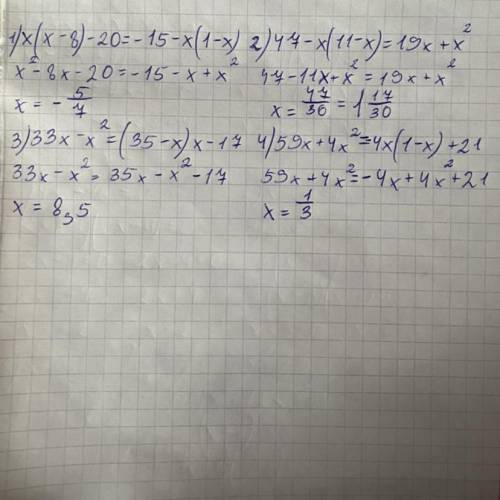 1) x(x-8)-20=-15-x(1-x) 2) 47-x(11-x)=19x+x²
x²-8x-20=-15-x+x² 47-11x+x²=19x+x²
x=-5/7 x=47/30=1 17/30
3) 33x-x²=(35-x)x-17 4) 59x+4x²=4x(1-x)+21
33x-x²=35x-x²-17 59x+4x²=-4x+4x²+21
x=8,5 x=1/3